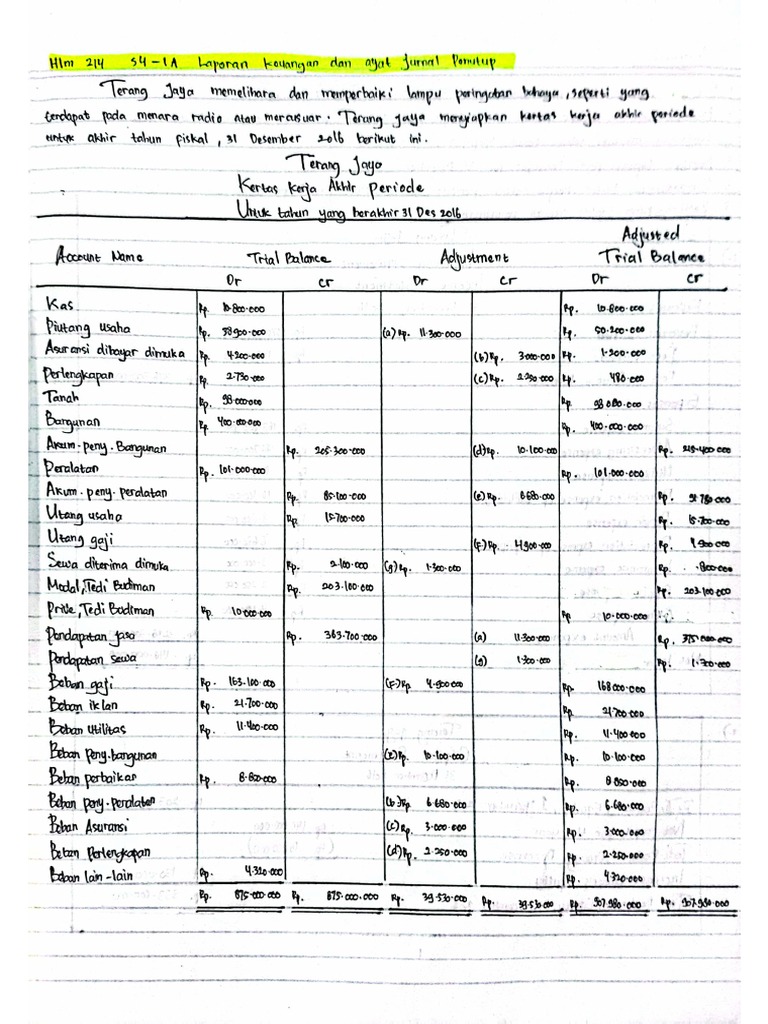 Hlm 214 S4-1A Laporan Keuangan dan ayat Jurnal Penutup
Terang Jaya memelihara dan memperbaiki lampu peringatan bahaya, seperti yang
terdapat pada menara radio atau mercusuar. Terang Jaya menyiapkan kertas kerja akhir periode
untuk akhir tahun fiskal, 31 Desember 2016 berikut ini.
Terang Jaya
Kertas Kerja Akhir Periode
Untuk tahun yang berakhir 31 Des 2016
Account Name Trial Balance Adjustment Adjusted Trial Balance
Dr Cr Dr Cr Dr Cr
Kas Rp. 10.800.000 Rp. 10.800.000
Piutang usaha Rp. 38.900.000 (a) Rp. 11.300.000 Rp. 50.200.000
Asuransi dibayar dimuka Rp. 4.200.000 (b) Rp. 3.000.000 Rp. 1.200.000
Perlengkapan Rp. 2.730.000 (c) Rp. 2.250.000 Rp. 480.000
Tanah Rp. 98.000.000 Rp. 98.000.000
Bangunan Rp. 400.000.000 Rp. 400.000.000
Akum. peny. Bangunan Rp. 205.300.000 (d) Rp. 10.100.000 Rp. 215.400.000
Peralatan Rp. 101.000.000 Rp. 101.000.000
Akum. peny. peralatan Rp. 85.100.000 (e) Rp. 6.680.000 Rp. 91.780.000
Utang usaha Rp. 15.700.000 Rp. 15.700.000
Utang gaji (f) Rp. 4.900.000 Rp. 4.900.000
Sewa diterima dimuka Rp. 2.100.000 (g) Rp. 1.300.000 Rp. 800.000
Modal, Tedi Budiman Rp. 203.100.000 Rp. 203.100.000
Prive, Tedi Budiman Rp. 10.000.000 Rp. 10.000.000
Pendapatan jasa Rp. 363.700.000 (a) 11.300.000 Rp. 375.000.000
Pendapatan sewa (g) 1.300.000 Rp. 1.300.000
Beban gaji Rp. 163.100.000 (f) Rp. 4.900.000 Rp. 168.000.000
Beban iklan Rp. 21.700.000 Rp. 21.700.000
Beban utilitas Rp. 11.400.000 Rp. 11.400.000
Beban peny. bangunan (e) Rp. 10.100.000 Rp. 10.100.000
Beban perbaikan Rp. 8.850.000 Rp. 8.850.000
Beban peny. peralatan (b) Rp. 6.680.000 Rp. 6.680.000
Beban Asuransi (c) Rp. 3.000.000 Rp. 3.000.000
Beban Perlengkapan (d) Rp. 2.250.000 Rp. 2.250.000
Beban lain-lain Rp. 4.320.000 Rp. 4.320.000
Rp. 875.000.000 Rp. 875.000.000 Rp. 39.530.000 Rp. 39.530.000 Rp. 907.980.000 Rp. 907.980.000